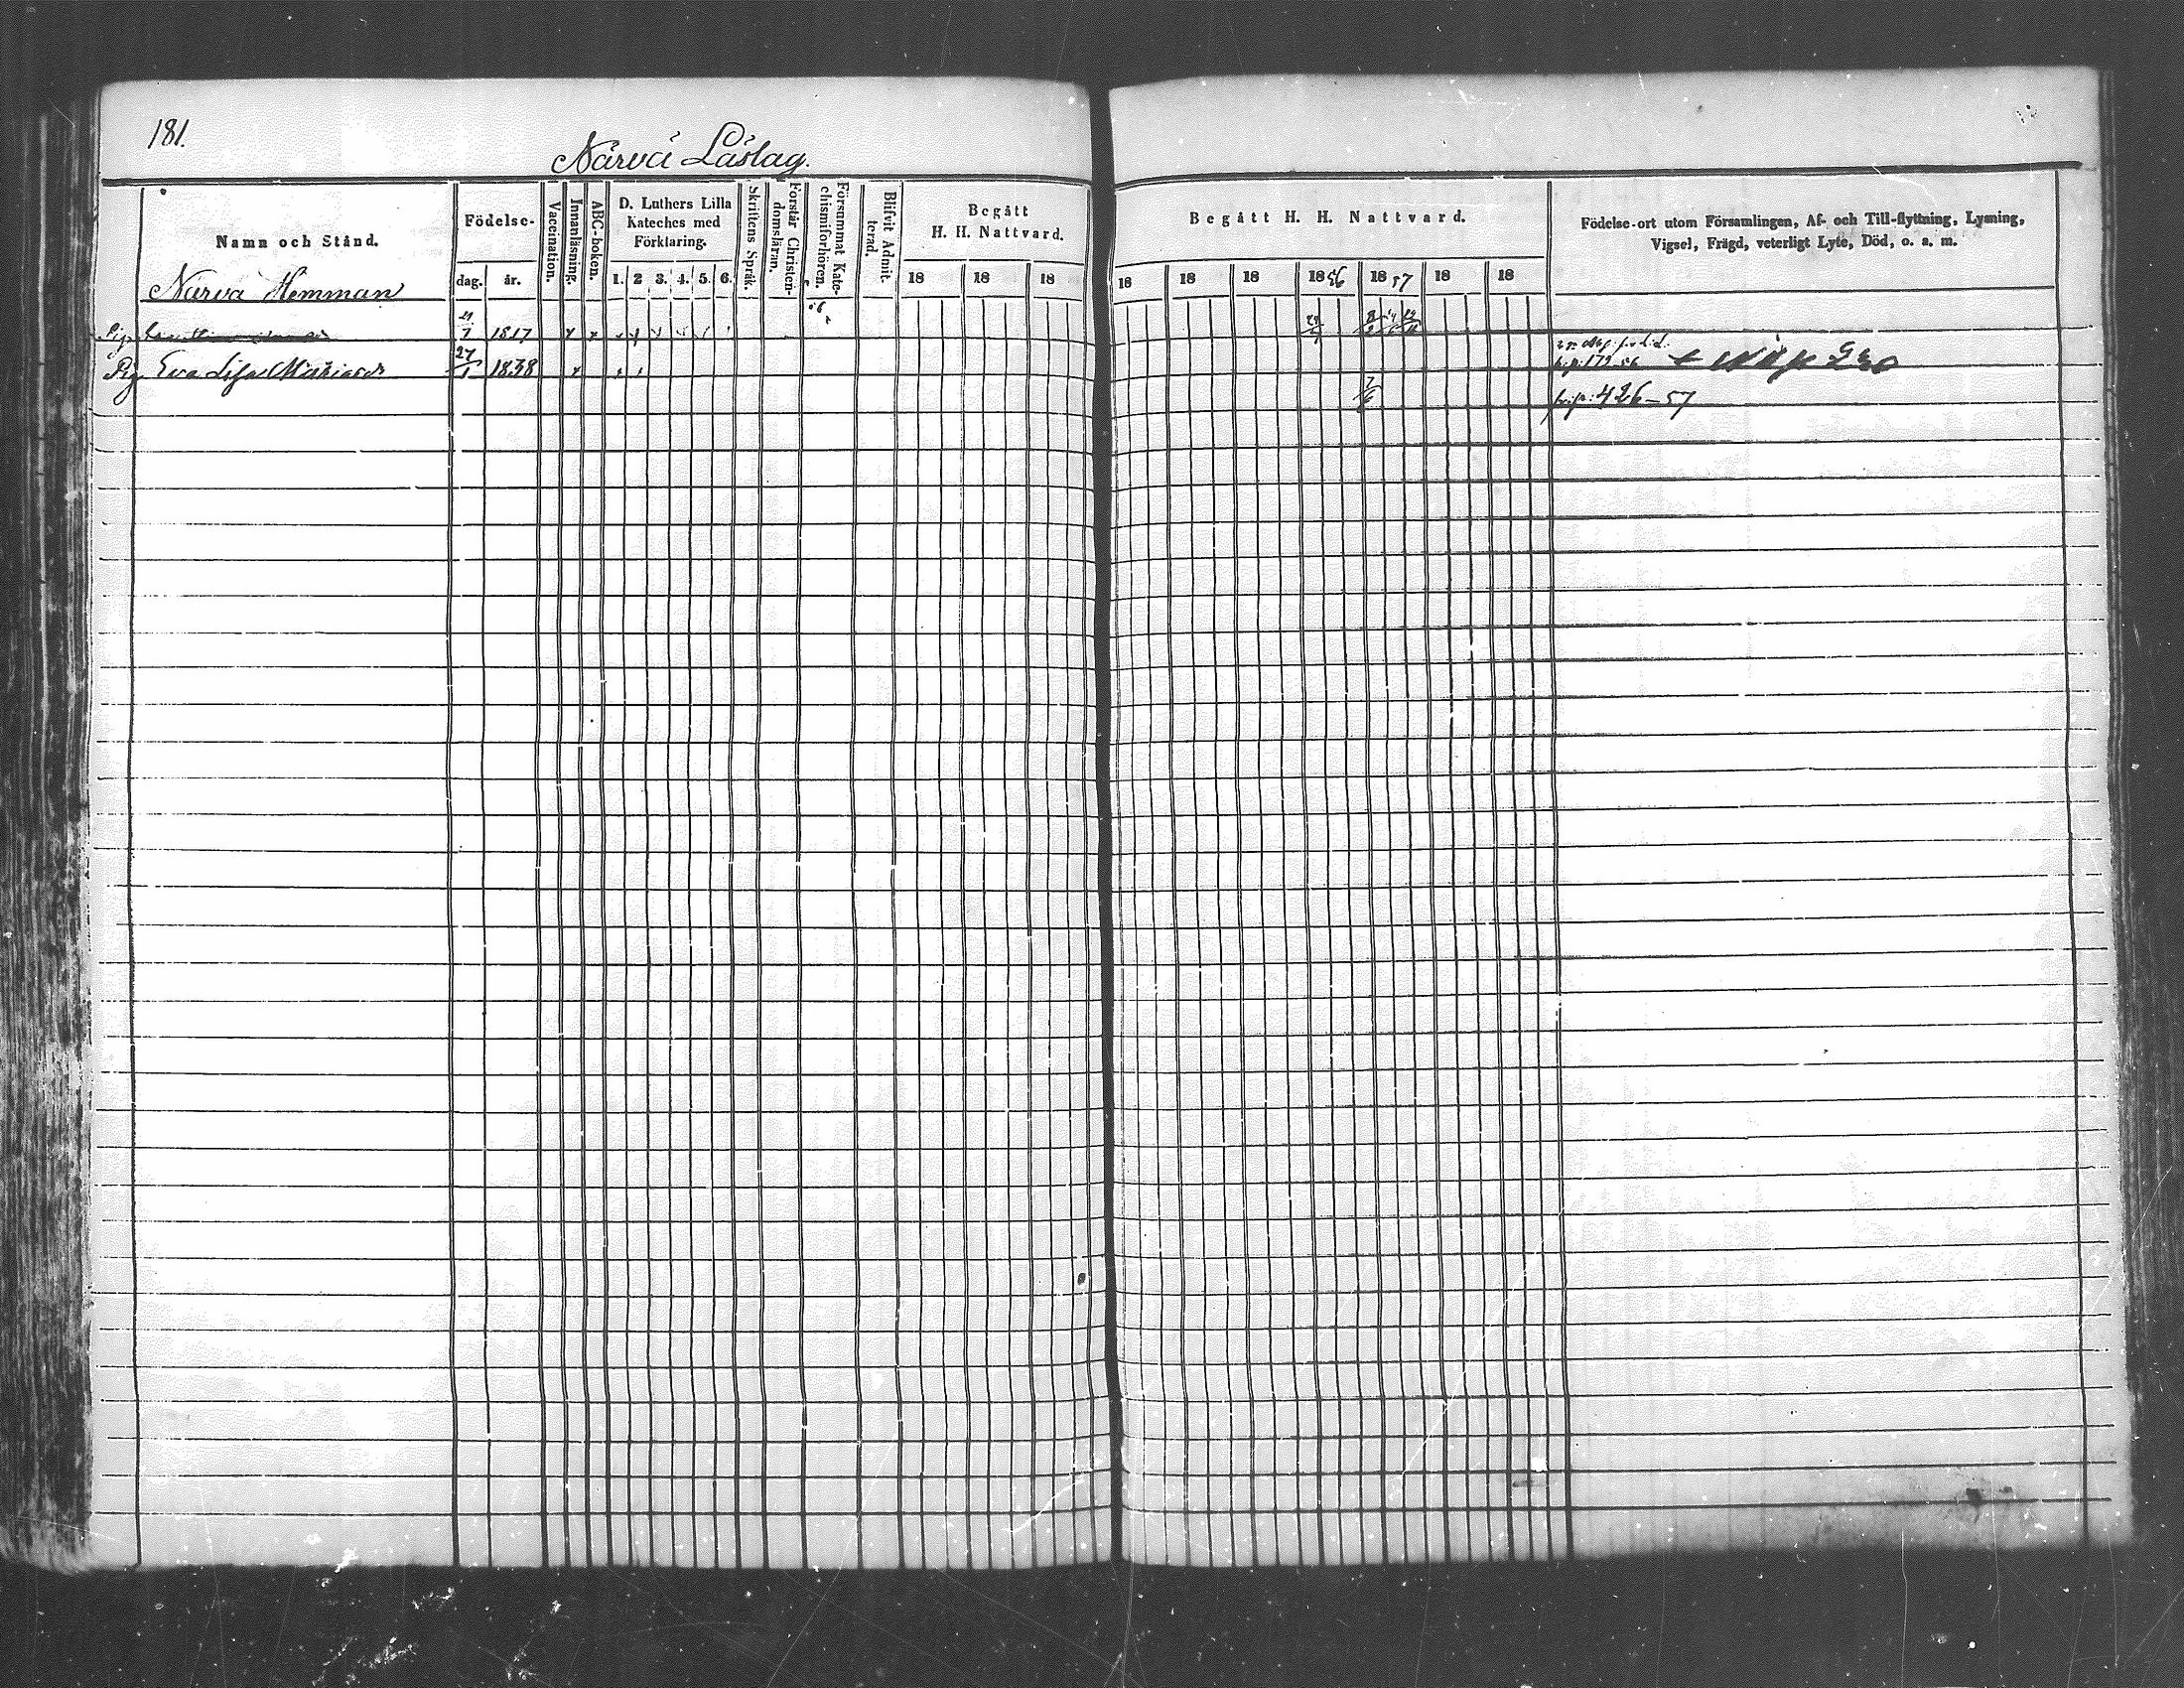 181.
Närvä Läslag.
Namn och Stånd.
Närvä Hemman
Födelse-
dag. år.
Vaccination.
Innanläsning.
ABC-boken.
D. Luthers Lilla
Kateches med
Förklaring.
1. 2 3. 4. 5. 6.
Skriftens Språk.
Förstår Christen-
domsläran.
Försummat Kate-
chismiförhören.
Blifvit Admit-
terad.
Begått
H. H. Nattvard.
18 18 18
Begått H. H. Nattvard.
18 18 18 1856 1857 18 18
Födelse-ort utom Församlingen, Af- och Till-flyttning, Lysning,
Vigsel, Frägd, veterligt Lyte, Död, o. a. m.
1817
Pig. Eva Lisa 27/1 1838
179-56
426-57